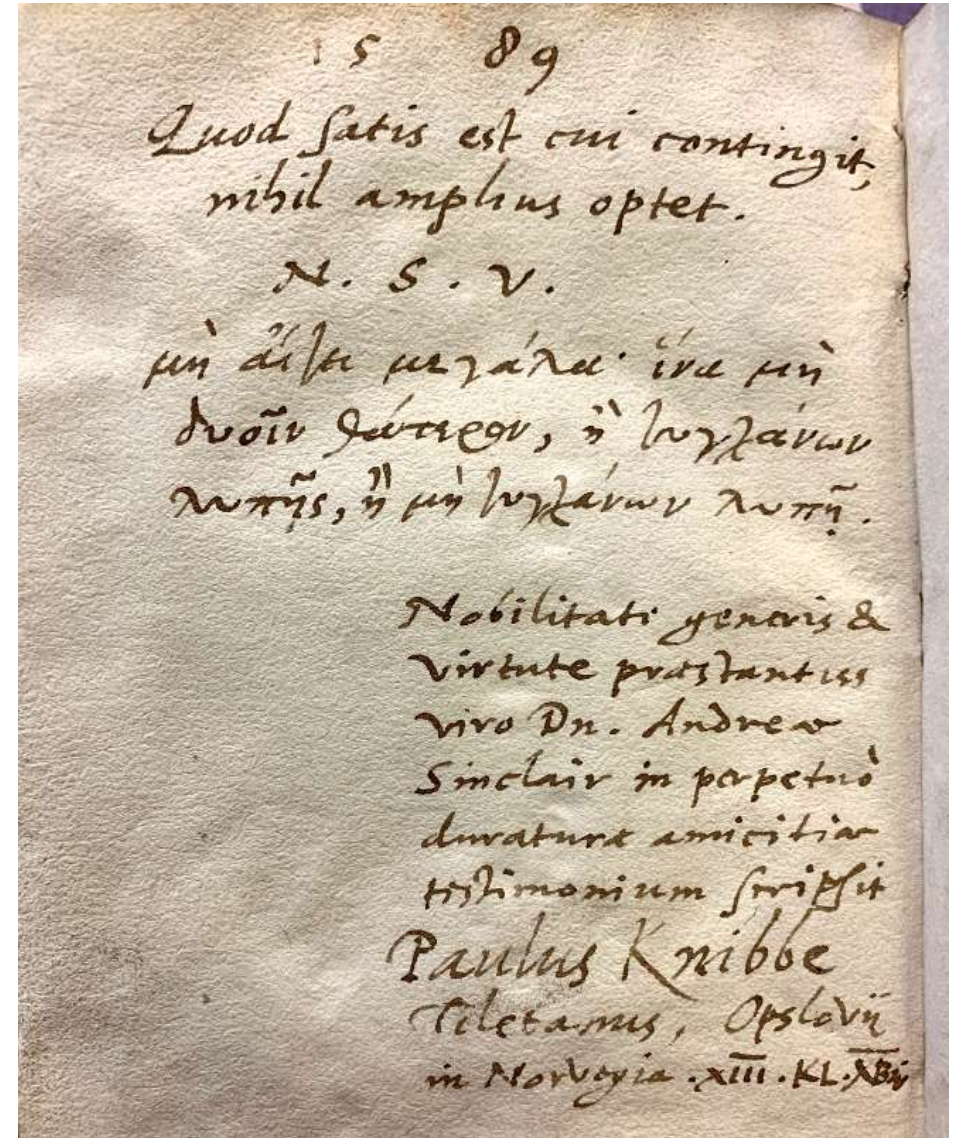 15 89
Quod satis est cui contingit,
nihil amplius optet.
N. S. V.
μὴ μεγάλα· ἵνα μὴ
δυοῖν θάτερον, ἢ τυγχάνων
λυπῇς, ἢ μὴ τυγχάνων λυπῇ.
Nobilitati generis &
virtute præstantiss
viro Dn. Andreæ
Sinclair in perpetuò
duraturæ amicitiæ
testimonium scripsit
Paulus Knibbe
Tiletanus, Opslovij
in Norvegia .XIII. KL.